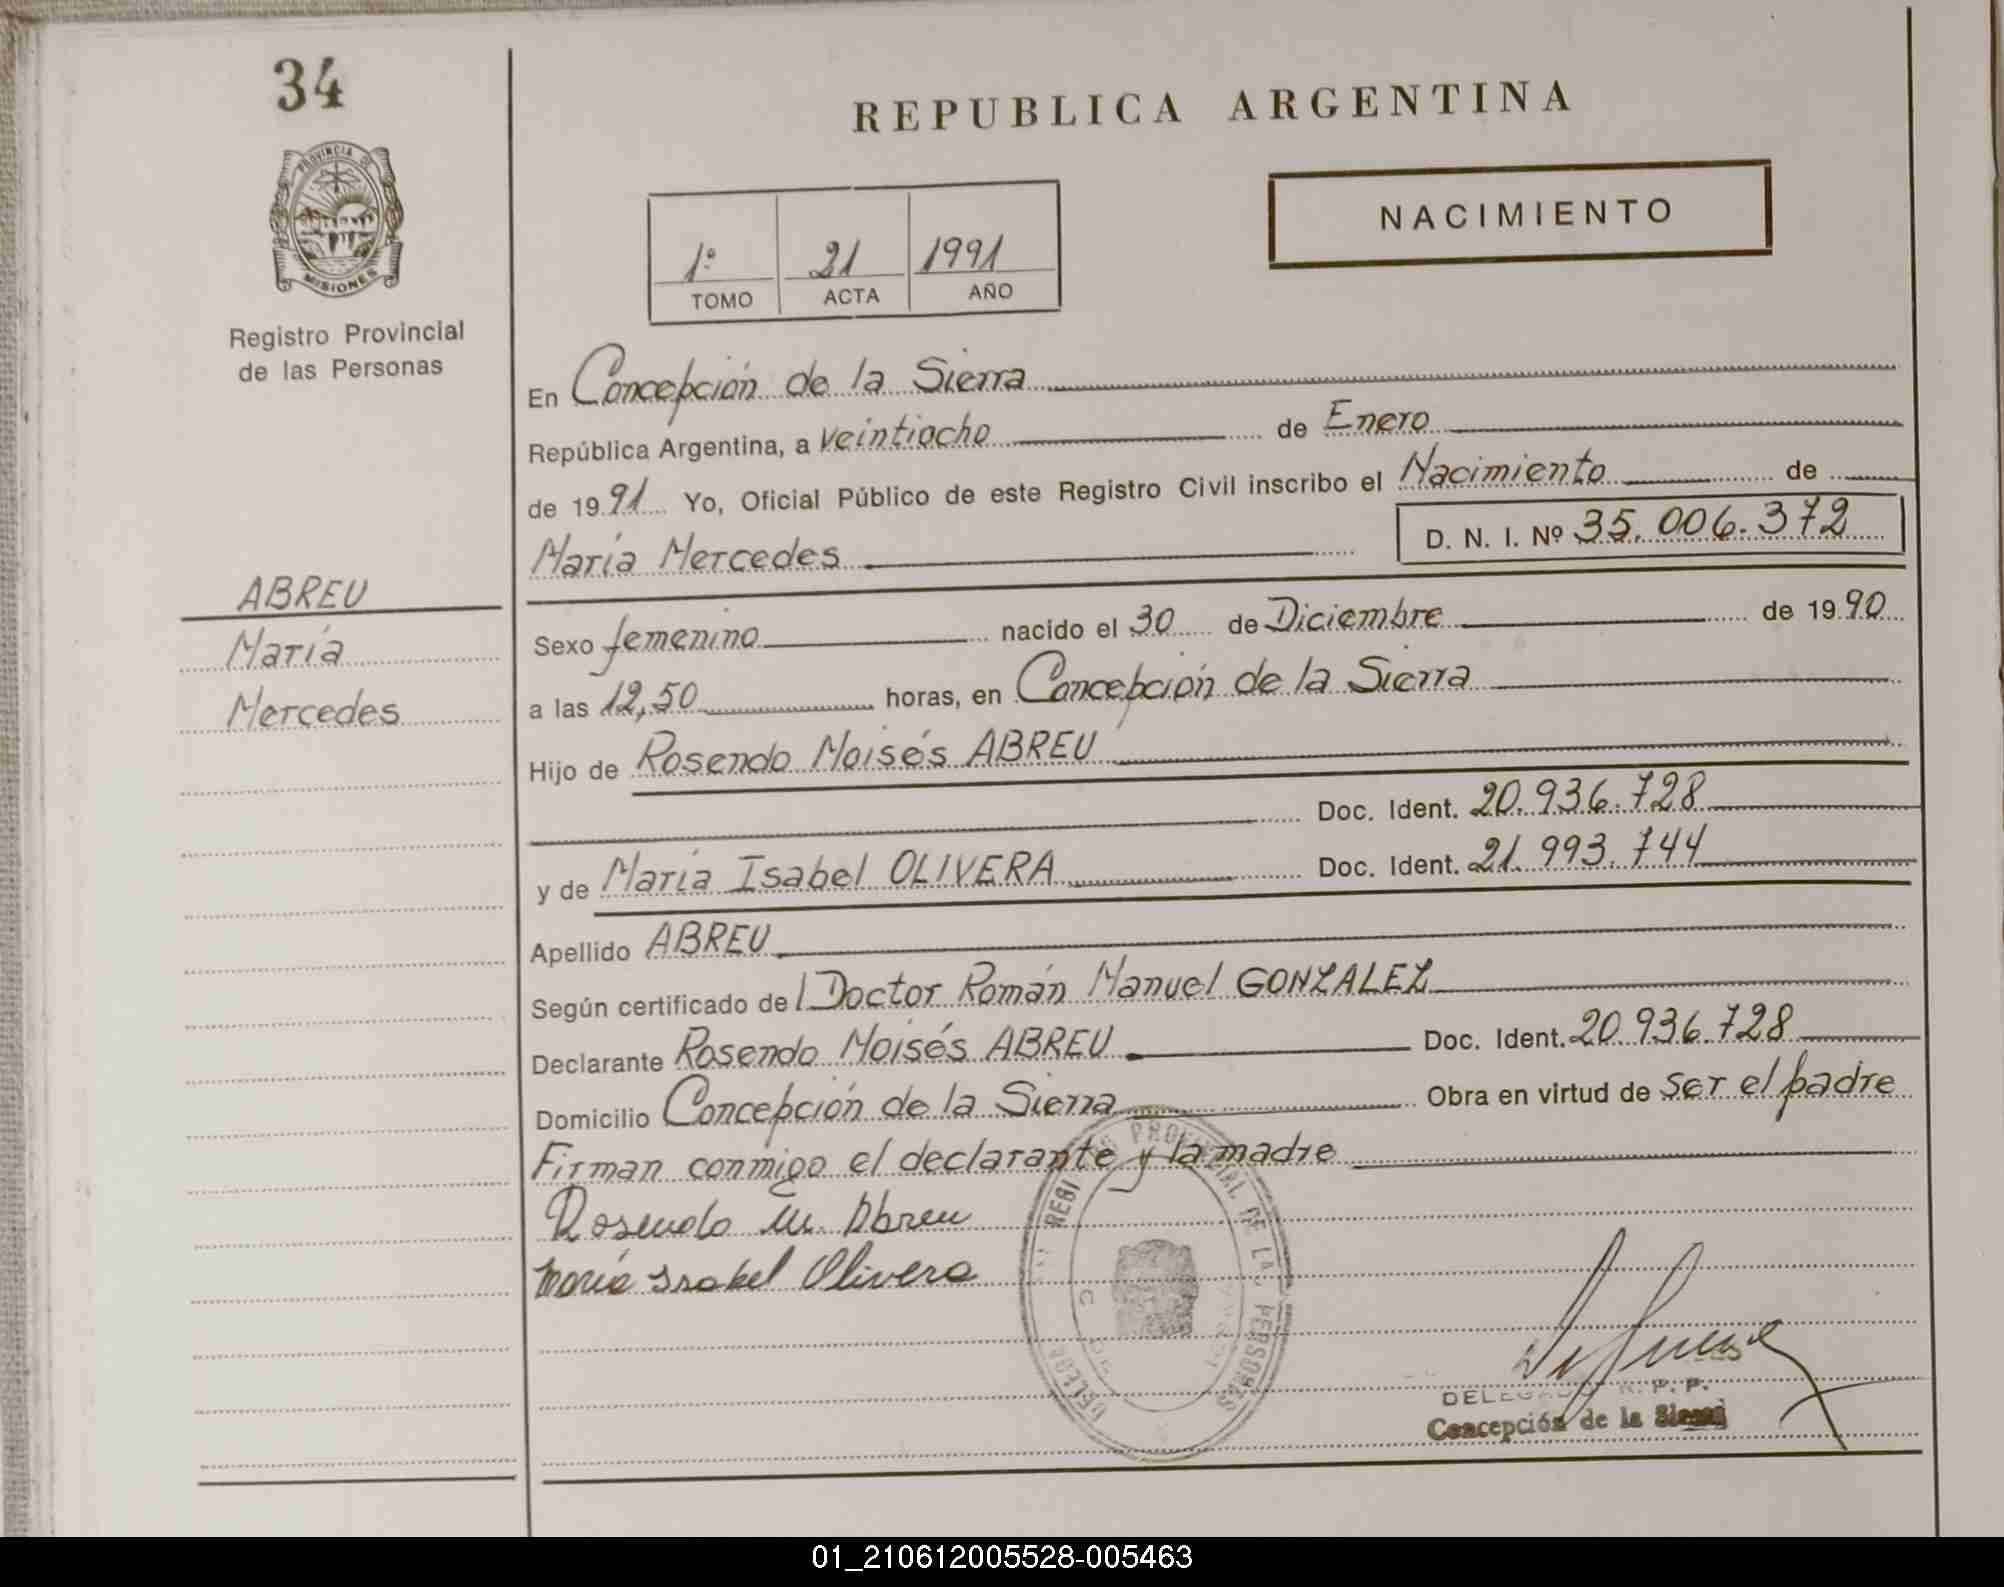 34
PROVINCIA DE
MISIONES
Registro Provincial
de las Personas
REPUBLICA ARGENTINA
NACIMIENTO
1º 21 1991
TOMO ACTA AÑO
En Concepción de la Sierra
República Argentina, a veintiocho de Enero
de 1991 Yo, Oficial Público de este Registro Civil inscribo el Nacimiento de
María Mercedes D. N. I. Nº 35.006.372
ABREU
María
Mercedes
Sexo femenino nacido el 30 de Diciembre de 1990
a las 12,50 horas, en Concepción de la Sierra
Hijo de Rosendo Moisés ABREU
Doc. Ident. 20.936.728
y de María Isabel OLIVERA Doc. Ident. 21.993.744
Apellido ABREU
Según certificado del Doctor Román Manuel GONZALEZ
Declarante Rosendo Moisés ABREU Doc. Ident. 20.936.728
Domicilio Concepción de la Sierra Obra en virtud de ser el padre
Firman conmigo el declarante y la madre
Rosendo M. Abreu
María Isabel Olivera
PROVINCIAL DE LAS PERSONAS
DELEGADO R. P. P.
Concepción de la Sierra
01_210612005528-005463